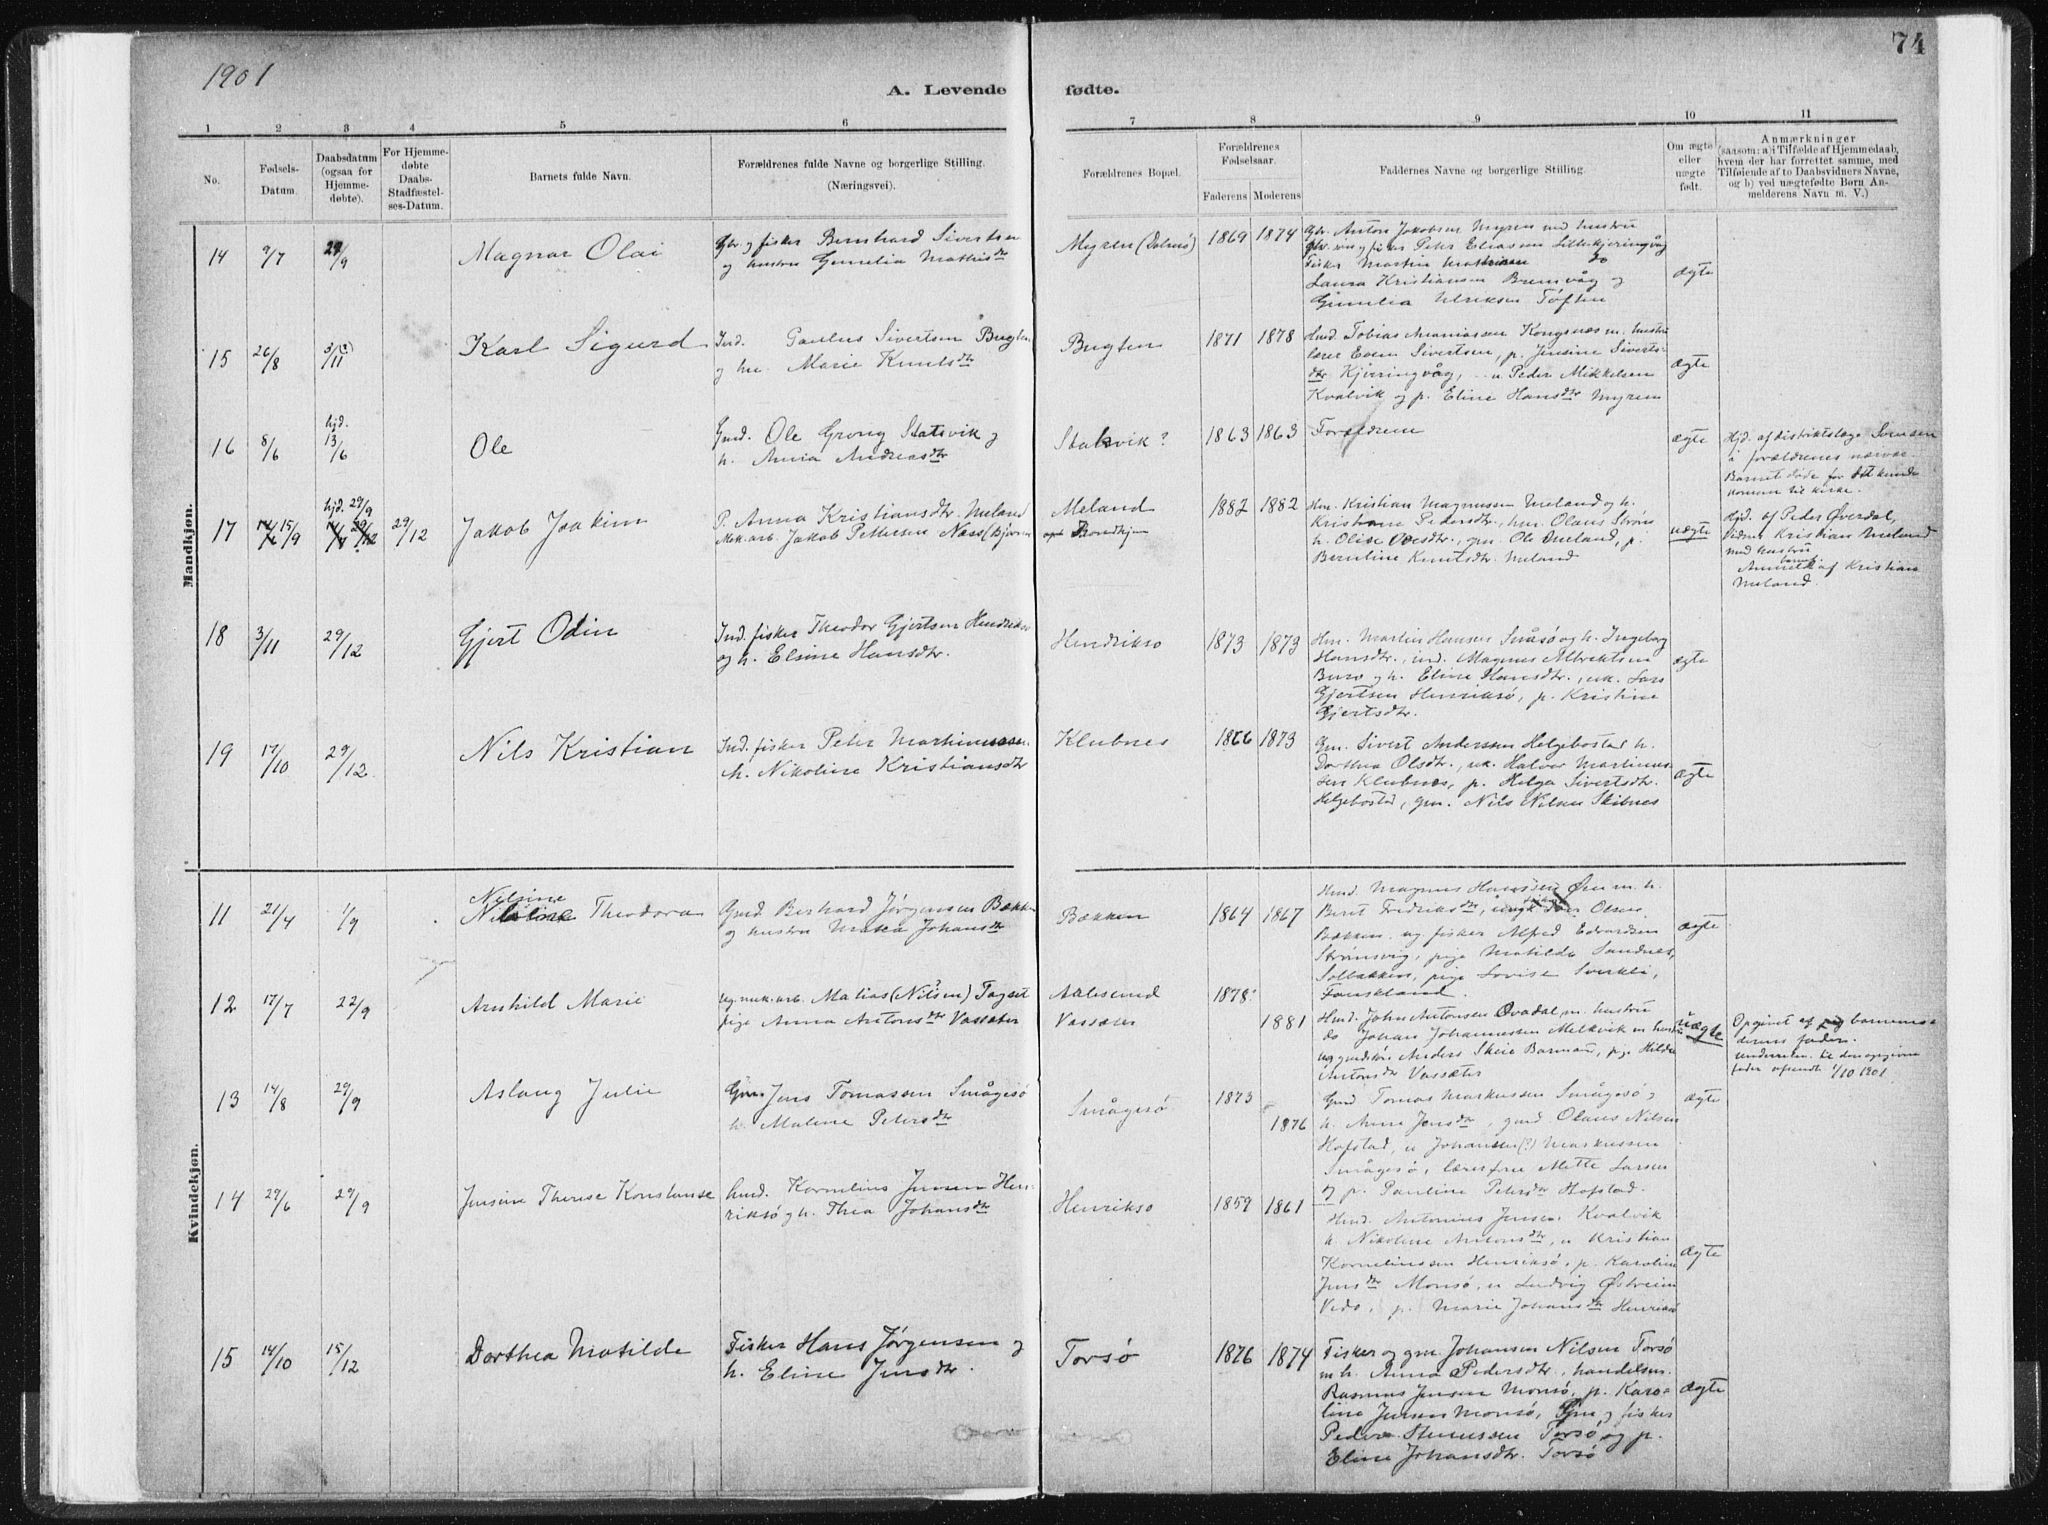 1901
74
A. Levende fødte.
1 2 3 4 5 6 7 8 9 10 11
No.
Fødsels-
Datum.
Daabsdatum
(ogsaa for
Hjemme-
døbte).
For Hjemme-
døbte
Daabs-
Stadfæstel-
ses-Datum.
Barnets fulde Navn.
Forældrenes fulde Navne og borgerlige Stilling.
(Næringsvei).
Forældrenes Bopæl.
Forældrenes
Fødselsaar.
Faderens Moderens
Faddernes Navne og borgerlige Stilling.
Om ægte
eller
uægte
født.
Anmærkninger
(saasom: a) i Tilfælde af Hjemmedaab,
hvem der har forrettet samme, med
Tilføiende af to Daabsvidners Navne,
og b) ved uægtefødte Børn An-
melderens Navn m. V.)
Mandkjøn.
14 9/7 29/9
Magnar Olai
Gbr. og fisker Bernhard Sivertsen
og hustru Gunelia Mathisdtr
Myren (Dolmø)
1869 1874
Gbr. Anton Jakobsen Myren med hustru
Peter Eliassen Lillekjeringvåg
Fisker Martin Mathisen do
Laura Kristiansen Bremvåg og
Gunelia Ulriksen Toften
ægte
15 26/8 3/11 (?)
Karl Sigurd
Ind. Paulus Sivertsen Bugten
og hu. Marie Knutsdtr
Bugten
1871 1878
Ind. Tobias Ananiassen Kongsnæs m. hustru
lærer Even Sivertsen, p. Jensine Siverts-
dtr Kjerringvåg, u. Peder Mikkelsen
Kvalvik og p. Eline Hansdtr Myren
ægte
16 8/6 hjd. 13/6
Ole
Gmd. Ole Grong Statsvik og
h. Anna Andreasdtr
Stalvik?
1863 1863
Forældrene
ægte
Hjd. af distriktslæge Sørensen
i forældrenes nærvær.
Barnet døde før det kunde
komme til kirke.
17 15/9 hjd. 29/9 29/12
Jakob Joakim
P. Anna Kristiansdtr. Meland
Mek. arb. Jakob Pettersen Næss
Meland
Trondhjem
1882 1882
Hm. Kristian Magnussen Meland og h.
Kristiane Pedersdtr., hm. Olaus Strøm
h. Olise Olesdtr., gm. Ole Meland, p.
Berntine Knutsdtr. Meland
uægte
Hjd. af Peder Øverdal,
Vidner Kristian Meland
med hustru
Anmeldt af Kristian
Meland.
18 3/11 29/12
Gjert Odin
Ind. fisker Theodor Gjertsen Hendrikso
og h. Elsine Hansdtr.
Hendrikso
1873 1873
Hm. Martin Hansen Småsø og h. Ingeborg
Hansdtr., ind. Magnus Albrektsen
Burø og h. Eline Hansdtr., uk. Lars
Gjertsen Henriksø, p. Kristine
Gjertsdtr.
ægte
19 17/10 29/12
Nils Kristian
Ind. fisker Peter Martinussen
h. Nikoline Kristiansdtr
Klubnes
1866 1873
Gm. Sivert Anderssen Helgebostad h.
Dorthea Olsdtr., uk. Halvor Martinus-
sen Klubnæs, p. Helga Sivertsdtr.
Helgebostad, gm. Nils Nilsen Skibnes
ægte
Kvindekjøn.
11 21/4 1/9
Nilsine
Theodora
Gmd Berhard Jørgensen Bækken
og hustru Johansdtr
Bækken
1864 1867
Hmd. Magnus Hanssen Øien m. h.
Beret Fredriksdtr, Olsen
Bækken, ug. fisker Alfred Edvardsen
Strømsvig, pige Matilde Sandnes,
Solbakken, pige Lovise Sverkli,
ægte
12 17/7 22/9
Arnhild Marie
ug. mek. arb. Matias (Nilsen)? Tagset
pige Anna Antonsdtr Vassæter
Aalesund
Vassæter
1878
1881
Hmd. John Antonsen Øvedal m. hustru
do Johan Johannessen Melkvik m hustru
ug gmdsøn Anders Skeie Barman, pige Hilda
Antonsdtr Vassæter
uægte
Opgivet af barnemo-
derens fader.
Underretn. til den opgivne
fader afsendt 1/10 1901.
13 14/8 29/9
Aslaug Julie
Gm. Jens Tomassen Smågesø
h. Malene Petersdtr
Smågesø
1873
1876
Gmd Tomas Markussen Smågesø og
h. Anne Jensdtr, gmd Olaus Nilsen
Hofstad, u Johansen (?) Markussen
Smågesø, lærerfrue Mette Larsen
og p. Pauline Petersdtr Hofstad.
ægte
14 29/6 29/9
Jensine Therese Konstanse
hmd. Kornelius Jensen Hen-
riksø og h. Thea Johansdtr
Henrikso
1859 1861
Hmd. Antonius Jensen Kvalvik
h. Nikoline Antonsdtr, u Kristian
Korneliussen Henriksø, p. Karoline
Jensdtr Monsø, u Ludvig Østreim
Vedø, p. Marie Johansdtr Henriksø
ægte
15 14/10 15/12
Dorthea Matilde
Fisker Hans Jørgensen og
h. Eline Jensdtr.
Torsø
1876 1874
Fisker og gm. Johansen Nilsen Torsø
m h. Anna Pedersdtr., handelsm.
Rasmus Jensen Monsø, p. Karo-
line Jensen Monsø, Gm og fisker
Peder Torsø og p.
Eline Johansdtr. Torsø
ægte